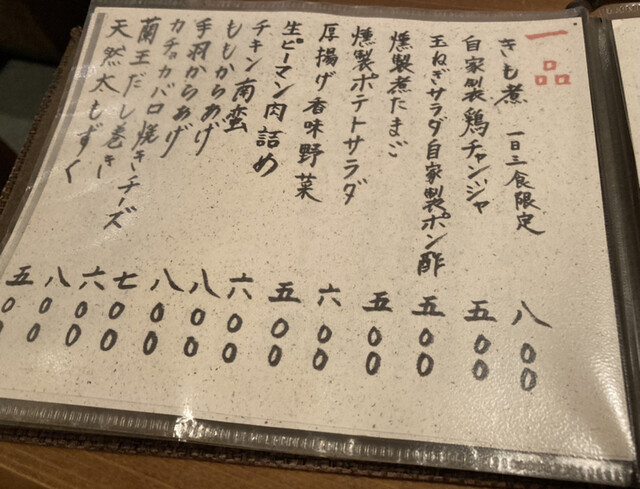 一品
きも煮 一日三食限定 八00
自家製鶏チャンジャ 五00
玉ねぎサラダ自家製ポン酢 五00
燻製煮たまご 五00
燻製ポテトサラダ 六00
厚揚げ香味野菜 五00
生ピーマン肉詰め 六00
チキン南蛮 八00
ももからあげ 八00
手羽からあげ 七00
カチョカバロ焼きチーズ 六00
蘭王だし巻き 八00
天然太もずく 五00